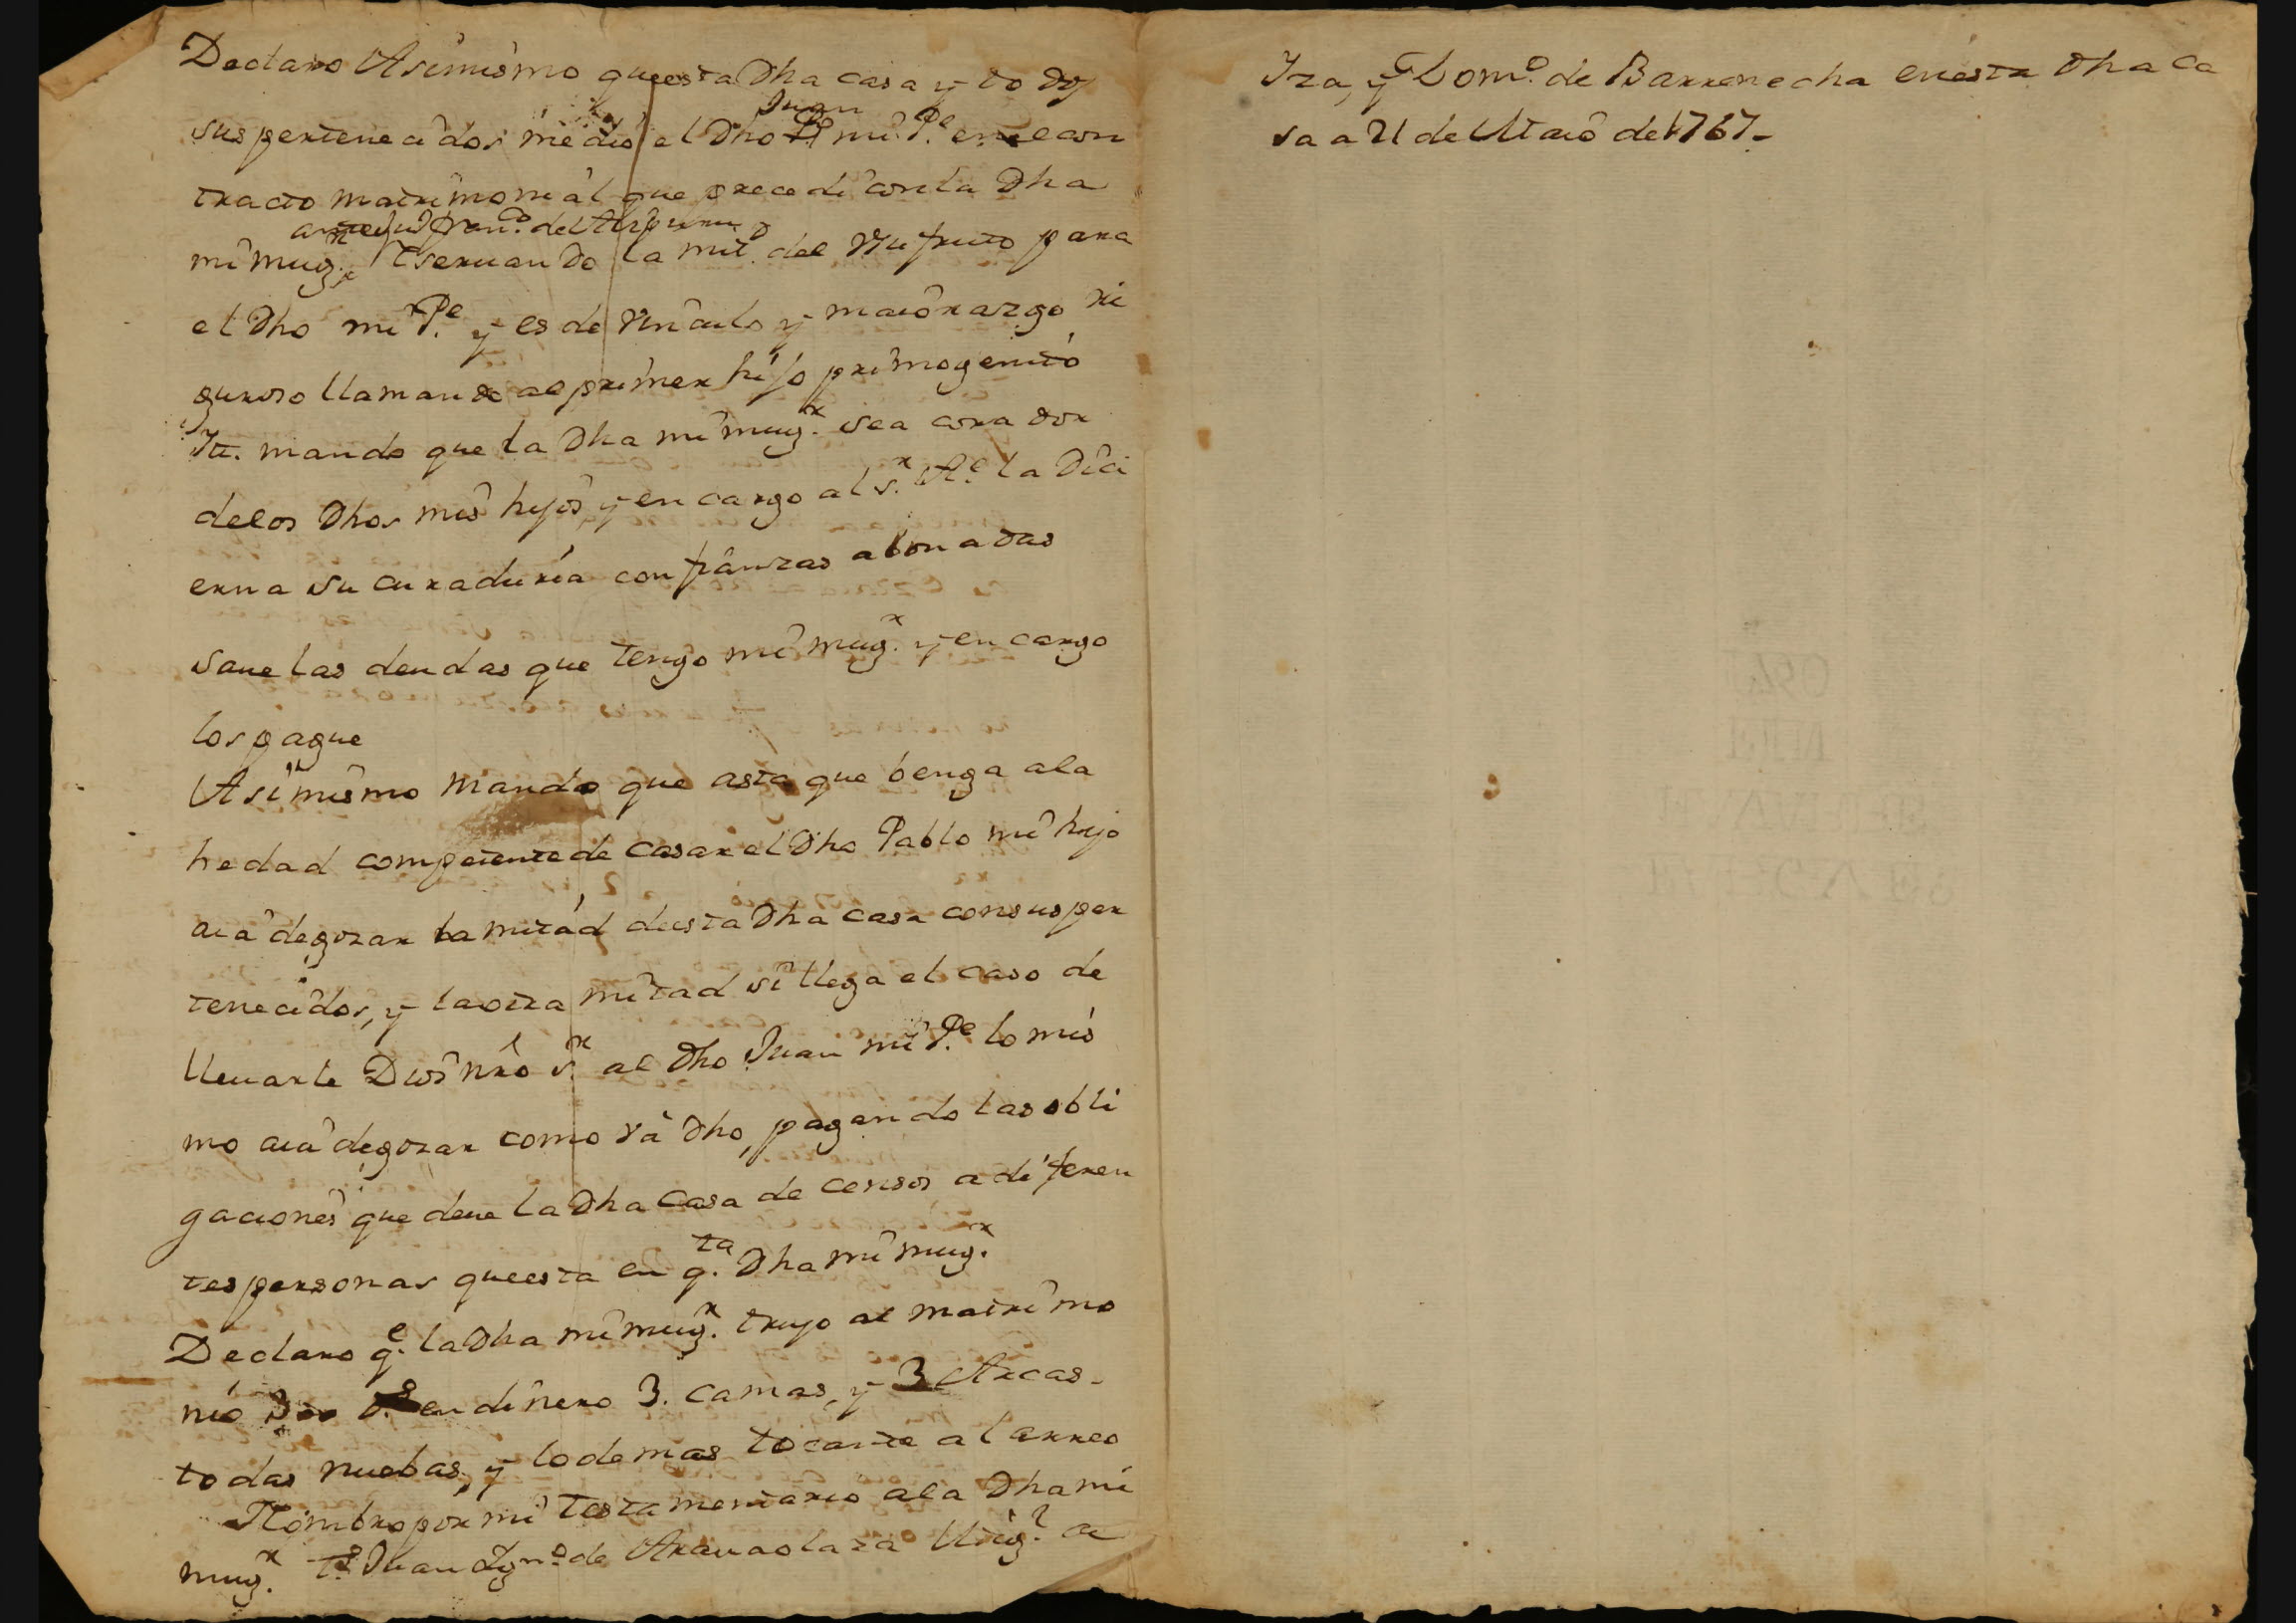 Declaro Asimismo questa Dha casa y todos
sus pertenecidos me dio el Dho Juan mi Pe. en el con
tracto matrimonial que precedi con la Dha
ante Juo Franco. del
mi mugr. reseruando la mitd. del vsufruto para
el Dho mi Pe. y es de vinculo y maiorazgo ri
guroso llamando al primer hijo primogenito
Itt. mando que la Dha mi mugr. sea corador
de los Dhos mis hijos y encargo al sr. Ale. la dici
erna su curaduria con fianzas abonadas
saue las deudas que tengo mi mugr. y encargo
los pague
Asimismo mando que asta que benga ala
hedad competente de casar el Dho Pablo mi hijo
aia de gozar la mitad de esta Dha casa con sus per
tenecidos, y la otra mitad si llega el caso de
lleuarle Dios nro sr. al Dho Juan mi Pe. lo mis
mo aia de gozar como va Dho, pagando las obli
gaciones que deue la Dha casa de censos a diferen
tes personas que esta en qta. Dha mi mugr.
Declaro qe. la Dha mi mugr. trujo al matrimo
nio 300 Ds. en dinero 3. camas, y 3 Arcas
todas nuebas, y lo demas tocante al arreo
Nombro por mi testamentario ala Dha mi
mugr. ts. Juan Igno. de Araunolaza Migl. de
Iza, y Domo. de Barrenecha en esta Dha ca
sa a 21 de Maio de 1767